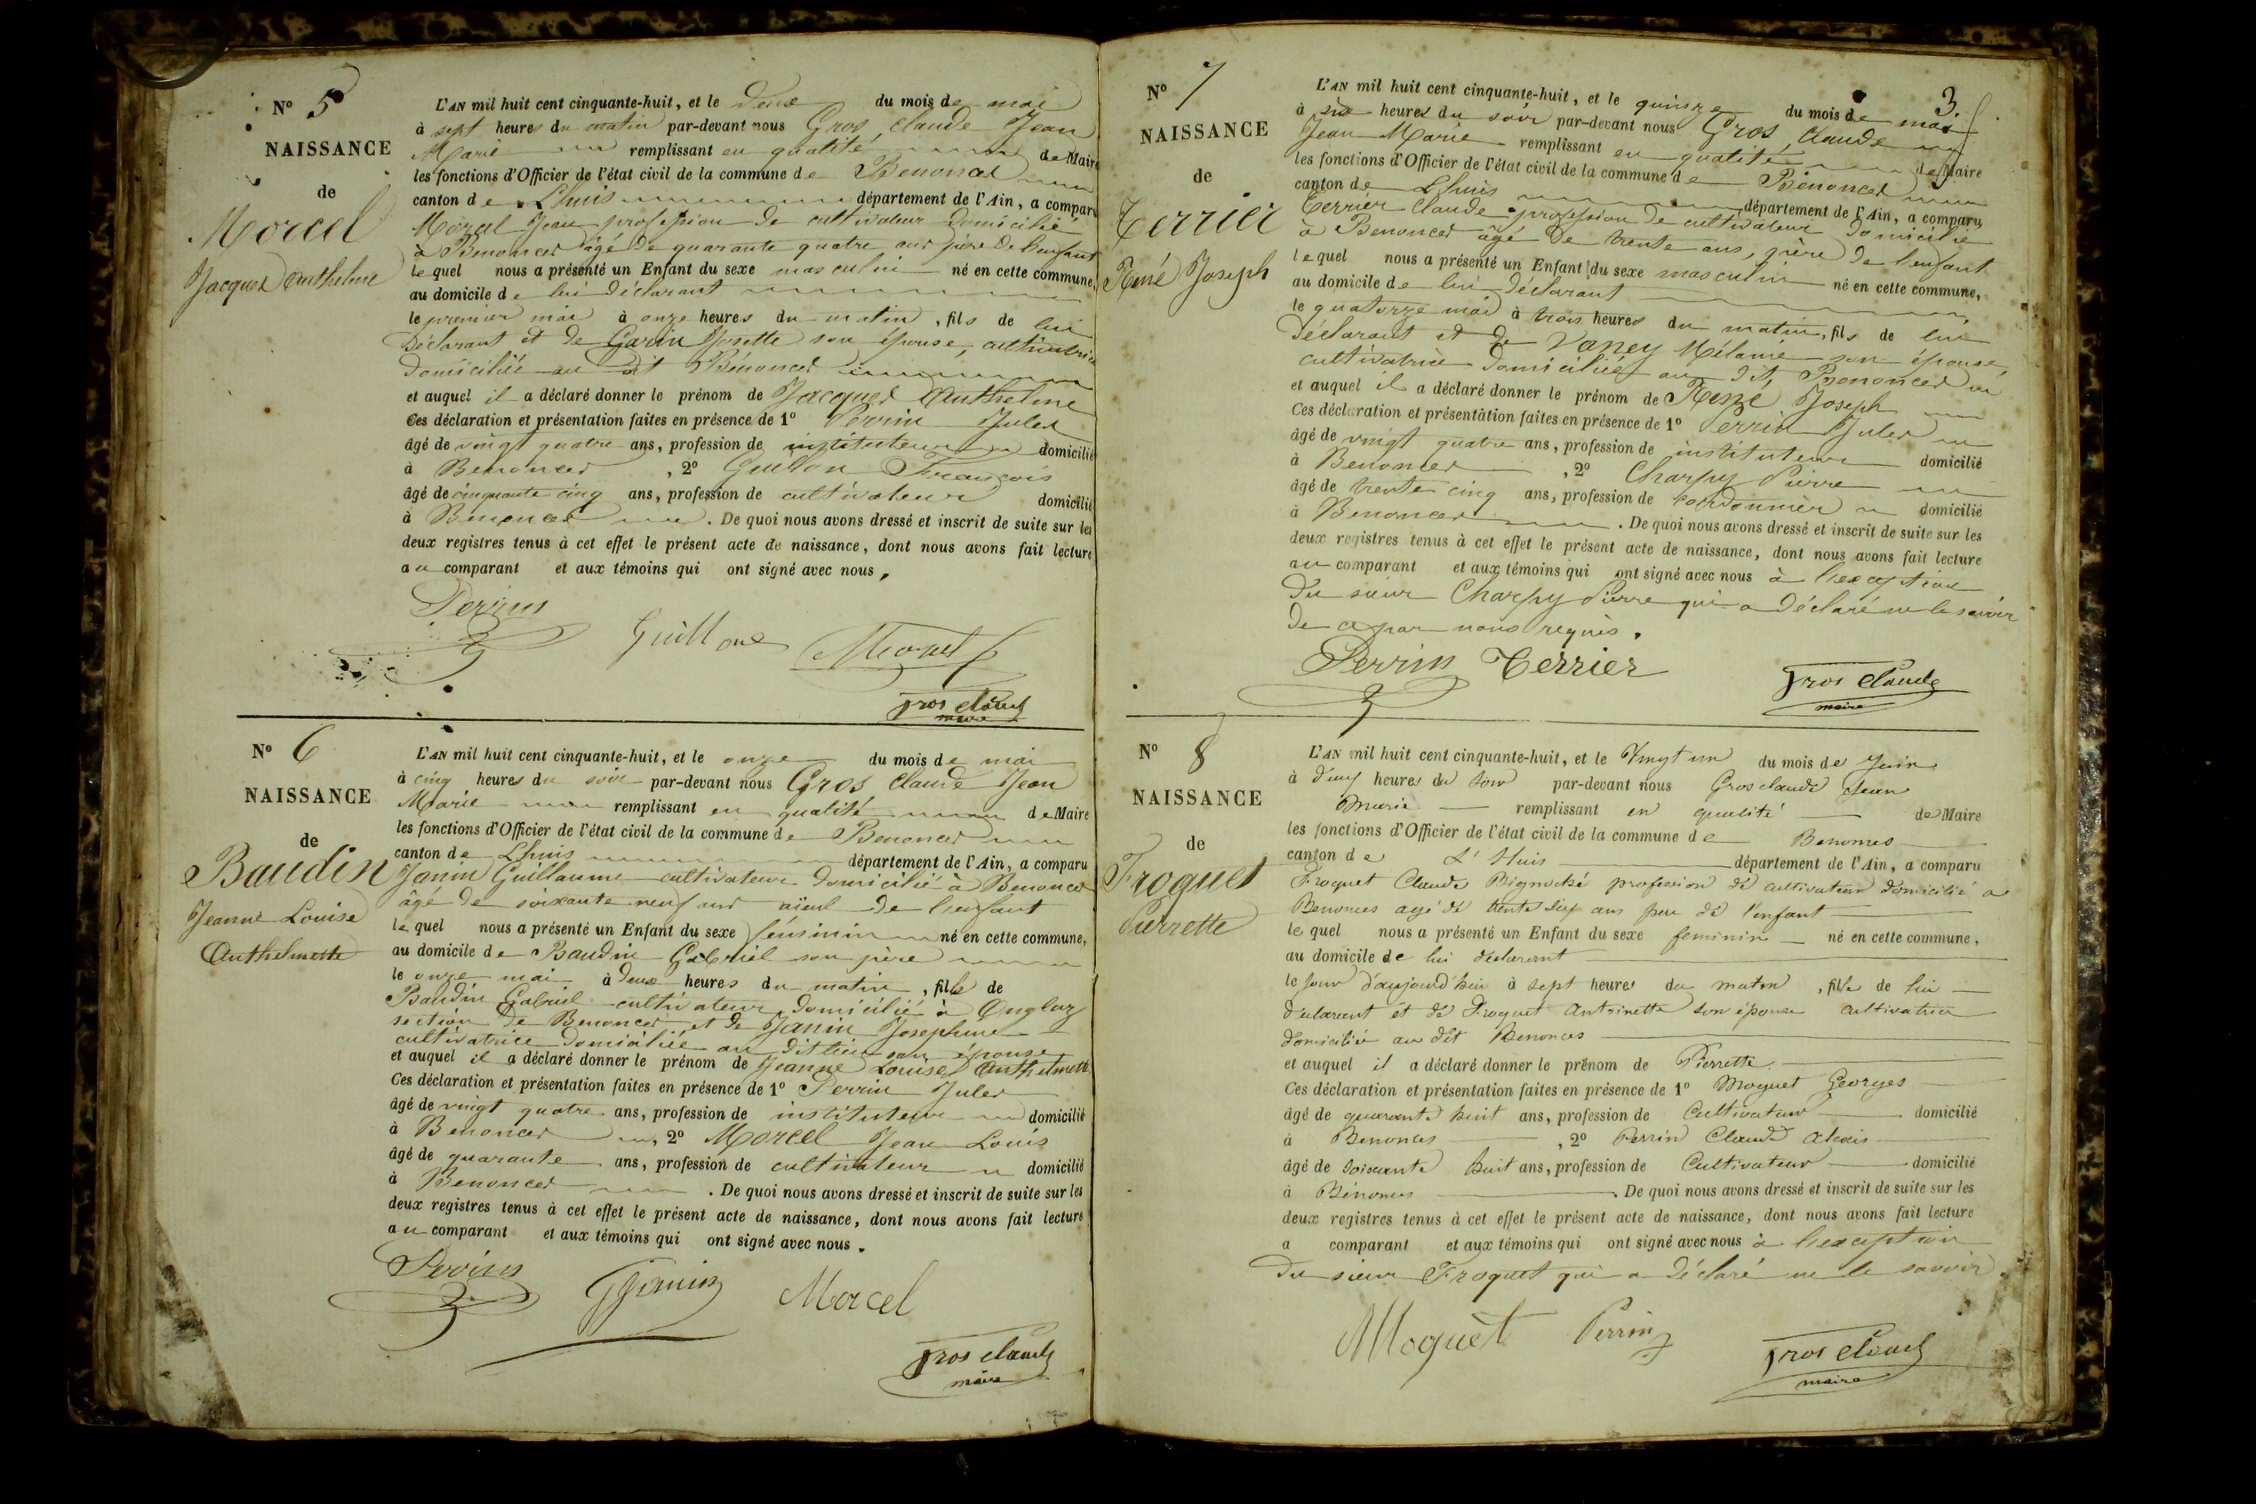 N° 5
NAISSANCE
de
Morcel
Jacques Anthelme
L'AN mil huit cent cinquante-huit, et le deux du mois de mai
à sept heures du matin par-devant nous Gros, Claude Jean
Marie remplissant en qualité de Maire
les fonctions d'Officier de l'état civil de la commune de Benonces
canton de Lhuis département de l'Ain, a comparu
Morcel Jean profession de cultivateur domicilié
à Benonces âgé de quarante quatre ans père de l'enfant
lequel nous a présenté un Enfant du sexe masculin né en cette commune,
au domicile de lui déclarant
le premier mai à onze heures du matin, fils de lui
déclarant et de Garin Josette son épouse, cultivatrice
domiciliée au dit Bénonces
et auquel il a déclaré donner le prénom de Jacques Anthelme
Ces déclaration et présentation faites en présence de 1° Perrin Jules
âgé de vingt quatre ans, profession de instituteur domicilié
à Benonces, 2° Guillon François
âgé de cinquante cinq ans, profession de cultivateur domicilié
à Benonces. De quoi nous avons dressé et inscrit de suite sur les
deux registres tenus à cet effet le présent acte de naissance, dont nous avons fait lecture
au comparant et aux témoins qui ont signé avec nous.
Perrin
Guillon Morcel
Gros Claude
maire
N° 6
NAISSANCE
de
Baudin
Jeanne Louise
Anthelmette
L'AN mil huit cent cinquante-huit, et le onze du mois de mai
à cinq heures du soir par-devant nous Gros, Claude Jean
Marie remplissant en qualité de Maire
les fonctions d'Officier de l'état civil de la commune de Benonces
canton de Lhuis département de l'Ain, a comparu
Janin Guillaume cultivateur domicilié à Benonces
âgé de soixante neuf ans aïeul de l'enfant
lequel nous a présenté un Enfant du sexe féminin né en cette commune,
au domicile de Baudin Gabriel son père
le onze mai à deux heures du matin, fille de
Baudin Gabriel cultivateur domicilié à Onglas
section de Benonces et de Janin Josephine
cultivatrice domiciliée au dit lieu son épouse
et auquel il a déclaré donner le prénom de Jeanne Louise Anthelmette
Ces déclaration et présentation faites en présence de 1° Perrin Jules
âgé de vingt quatre ans, profession de instituteur domicilié
à Benonces, 2° Morcel Jean Louis
âgé de quarante ans, profession de cultivateur domicilié
à Benonces. De quoi nous avons dressé et inscrit de suite sur les
deux registres tenus à cet effet le présent acte de naissance, dont nous avons fait lecture
au comparant et aux témoins qui ont signé avec nous.
Perrin Janin Morcel
Gros Claude
maire
3.
N° 7
NAISSANCE
de
Terrier
René Joseph
L'AN mil huit cent cinquante-huit, et le quinze du mois de mai
à six heures du soir par-devant nous Gros, Claude
Jean Marie remplissant en qualité de Maire
les fonctions d'Officier de l'état civil de la commune de Bénonces
canton de Lhuis département de l'Ain, a comparu
Terrier Claude profession de cultivateur domicilié
à Benonces âgé de trente ans, père de l'enfant
lequel nous a présenté un Enfant du sexe masculin né en cette commune,
au domicile de lui déclarant
le quatorze mai à trois heures du matin, fils de lui
déclarant et de Vaney Mélanie son épouse,
cultivatrice domiciliée au dit, Benonces
et auquel il a déclaré donner le prénom de René Joseph
Ces déclaration et présentation faites en présence de 1° Perrin Jules
âgé de vingt quatre ans, profession de instituteur domicilié
à Benonces, 2° Charpy Pierre
âgé de trente cinq ans, profession de cordonnier domicilié
à Benonces. De quoi nous avons dressé et inscrit de suite sur les
deux registres tenus à cet effet le présent acte de naissance, dont nous avons fait lecture
au comparant et aux témoins qui ont signé avec nous à l'exception
du sieur Charpy Pierre qui a déclaré ne le savoir
de ce par nous requis.
Perrin Terrier
Gros Claude
maire
N° 8
NAISSANCE
de
Froquet
Pierrette
L'AN mil huit cent cinquante-huit, et le Vingt un du mois de Juin
à deux heures du soir par-devant nous Gros claude Jean
Marie remplissant en qualité de Maire
les fonctions d'Officier de l'état civil de la commune de Benonces
canton de L'Huis département de l'Ain, a comparu
Froquet Claude profession de cultivateur domicilié a
Benonces agé de trente ans pere de l'enfant
lequel nous a présenté un Enfant du sexe feminin né en cette commune,
au domicile de lui déclarant
le jour d'aujourd'hui à sept heures du matin, fille de lui
déclarant et de Froquet Antoinette son épouse cultivatrice
domiciliée au dit Benonces
et auquel il a déclaré donner le prénom de Pierrette
Ces déclaration et présentation faites en présence de 1° Moquet Georges
âgé de quarante huit ans, profession de Cultivateur domicilié
à Benonces, 2° Perrin Claude
âgé de soixante huit ans, profession de Cultivateur domicilié
à Bénonces. De quoi nous avons dressé et inscrit de suite sur les
deux registres tenus à cet effet le présent acte de naissance, dont nous avons fait lecture
a comparant et aux témoins qui ont signé avec nous à l'exception
du sieur Froquet qui a déclaré ne le savoir.
Moquet Perrin
Gros Claude
maire